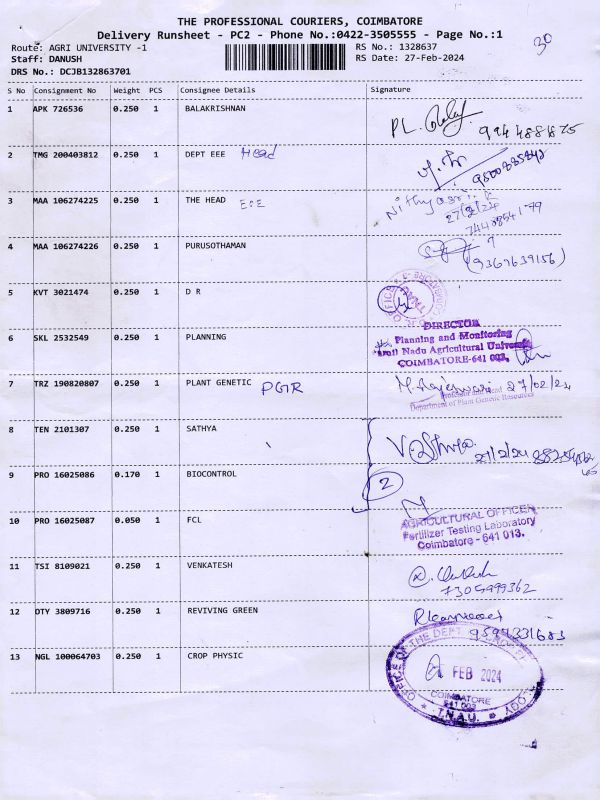 THE PROFESSIONAL COURIERS, COIMBATORE
Delivery Runsheet - PC2 - Phone No.:0422-3505555 - Page No.:1
30
Route: AGRI UNIVERSITY -1
RS No.: 1328637
Staff: DANUSH
RS Date: 27-Feb-2024
DRS No.: DCJB132863701
S No Consignment No Weight PCS Consignee Details Signature
1 APK 726536 0.250 1 BALAKRISHNAN
2 TMG 200403812 0.250 1 DEPT EEE Head
3 MAA 106274225 0.250 1 THE HEAD ECE
27/2/24
4 MAA 106274226 0.250 1 PURUSOTHAMAN
(9367639156)
5 KVT 3021474 0.250 1 D R
TNAU
6 SKL 2532549 0.250 1 PLANNING
DIRECTOR
Planning and Monitoring
Tamil Nadu Agricultural University
COIMBATORE-641 003.
7 TRZ 190820807 0.250 1 PLANT GENETIC PGR
27/02/24
Professor and Head
Department of Plant Genetic Resources
8 TEN 2101307 0.250 1 SATHYA
27/2/24
9 PRO 16025086 0.170 1 BIOCONTROL
2
10 PRO 16025087 0.050 1 FCL
AGRICULTURAL OFFICER
Fertilizer Testing Laboratory
Coimbatore - 641 013.
11 TSI 8109021 0.250 1 VENKATESH
7305999362
12 DTY 3809716 0.250 1 REVIVING GREEN
9597331683
13 NGL 100064703 0.250 1 CROP PHYSIC
OFFICE OF THE DEPT.
FEB 2024
COIMBATORE
641 003
T.N.A.U.